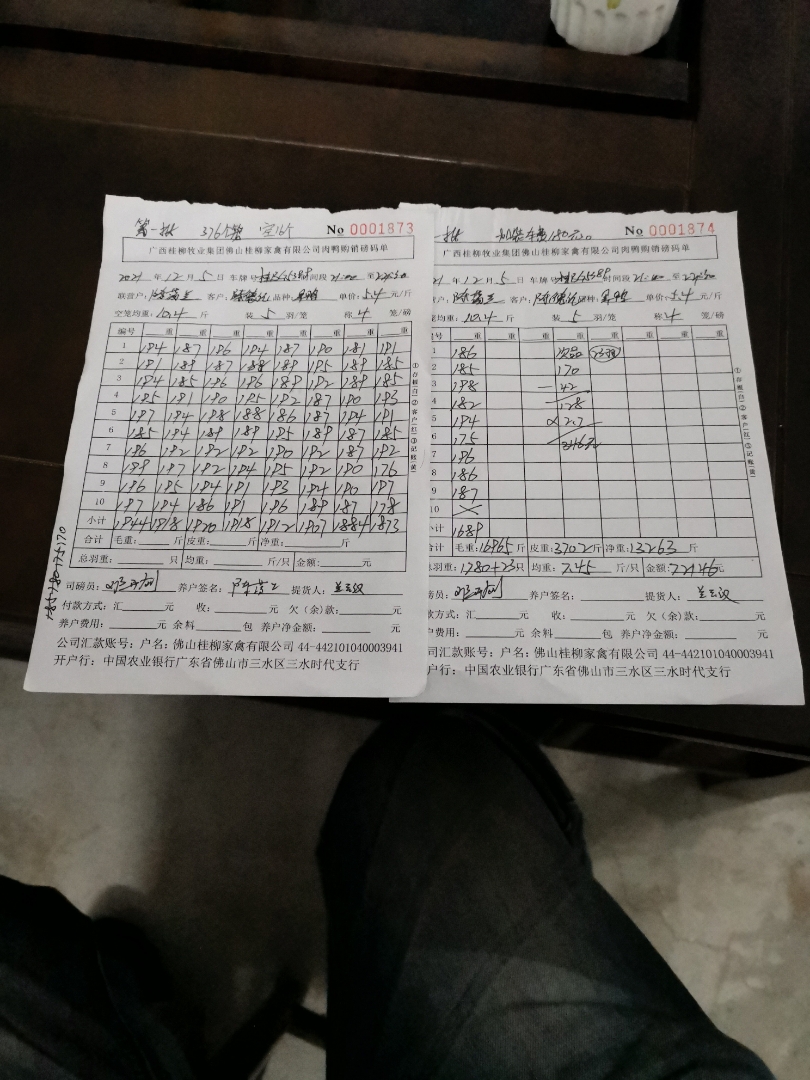 第一批 376个笼 空165 No 0001873
广西桂柳牧业集团佛山桂柳家禽有限公司肉鸭购销磅码单
2021 年 12 月 5 日 车牌号 时间段 21:00 至
联营户: 客户: 品种: 单价: 5.4 元/斤
空笼均重: 10.4 斤 装 5 羽/笼 称 4 笼/磅
编号 重 重 重 重 重 重 重 重
1 184 187 186 184 187 180 181 181
2 181 189 187 188 189 185 189 185
3 184 185 186 186 189 182 189 185
4 185 181 180 185 182 187 180 183
5 187 184 188 188 186 187 184 181
6 185 184 189 189 185 189 187 185
7 186 182 182 182 180 182 187 182
8 189 187 182 184 185 182 180 176
9 186 185 184 181 183 184 180 187
10 187 184 186 181 186 189 187 178
小计 1844 1818 1820 1818 1812 1807 1884 1873
合计 毛重: 斤 皮重: 斤 净重: 斤
总羽重: 只 均重: 斤/只 金额: 元
司磅员: 养户签名: 提货人:
付款方式: 汇 元 收: 元 欠(余)款: 元
养户费用: 元 余料 包 养户净金额: 元
公司汇款账号: 户名: 佛山桂柳家禽有限公司 44-442101040003941
开户行: 中国农业银行广东省佛山市三水区三水时代支行
①存根(白)②客户(红)③记账(黄)
一批 加装车费180元。 No 0001874
广西桂柳牧业集团佛山桂柳家禽有限公司肉鸭购销磅码单
21 年 12 月 5 日 车牌号 时间段 21:00 至
营户: 客户: 品种: 单价: 5.4 元/斤
笼均重: 10.4 斤 装 5 羽/笼 称 4 笼/磅
号 重 重 重 重 重 重 重 重
1 186 次品 23只
2 185 170
3 188 — 42
4 182 128
5 184 ×2.7
6 175 346元
7 186
8 186
9 187
10 ×
小计 1689
合计 毛重: 16965 斤 皮重: 3702 斤 净重: 13263 斤
总羽重: 1780+23 只 均重: 7.45 斤/只 金额: 72146 元
磅员: 养户签名: 提货人:
款方式: 汇 元 收: 元 欠(余)款: 元
户费用: 元 余料 包 养户净金额: 元
司汇款账号: 户名: 佛山桂柳家禽有限公司 44-442101040003941
户行: 中国农业银行广东省佛山市三水区三水时代支行
①存根(白)②客户(红)③记账(黄)